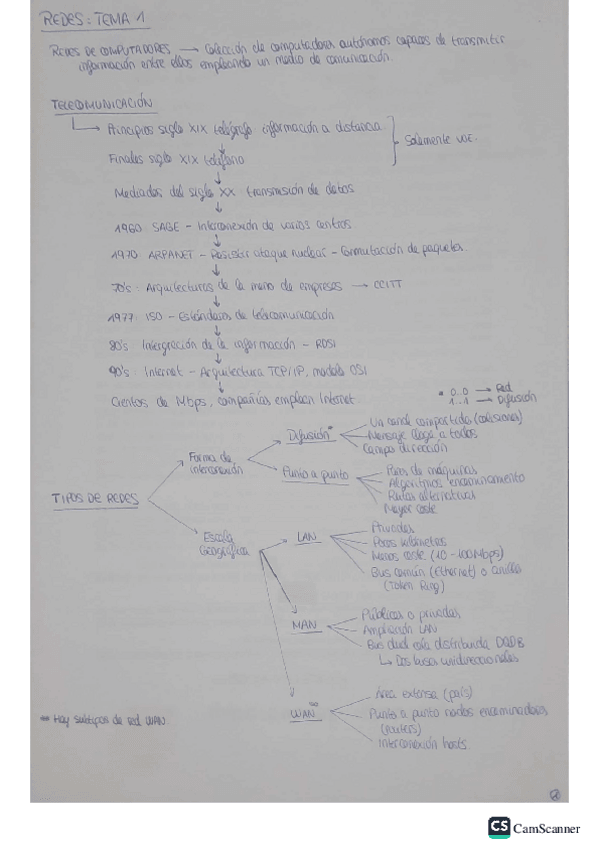 REDES: TEMA 1
REDES DE COMPUTADORES → Colección de computadores autónomos capaces de transmitir
información entre ellos empleando un medio de comunicación.
TELECOMUNICACIÓN
Principios siglo XIX telégrafo información a distancia
Solamente voz.
Finales siglo XIX teléfono
Mediados del siglo XX transmisión de datos
1960 SAGE - Interconexión de varios centros
1970 ARPANET - Resistir ataque nuclear - Conmutación de paquetes
70's: Arquitecturas de la mano de empresas → CCITT
1977: ISO - Estándares de telecomunicación
80's: Intergración de la información - RDSI
90's: Internet - Arquitectura TCP/IP, modelo OSI
Cientos de Mbps, compañías emplean Internet.
* 0..0 → Red
1..1 → Difusión
TIPOS DE REDES
Forma de
interconexión
Difusión*
Un canal compartido (colisiones)
Mensaje llega a todos
Campo dirección
Punto a punto
Pares de máquinas
Algoritmos encaminamiento
Rutas alternativas
Mayor coste
Escala
Geográfica
LAN
Privadas
Pocos kilómetros
Menos coste (10-100Mbps)
Bus común (Ethernet) o anillo
(Token Ring)
MAN
Públicas o privadas
Ampliación LAN
Bus dual cola distribuida DQDB
↳ Dos buses unidireccionales
WAN**
Área extensa (país)
Punto a punto nodos encaminadores
(routers)
Interconexión hosts.
** Hay subtipos de red WAN.
CS CamScanner